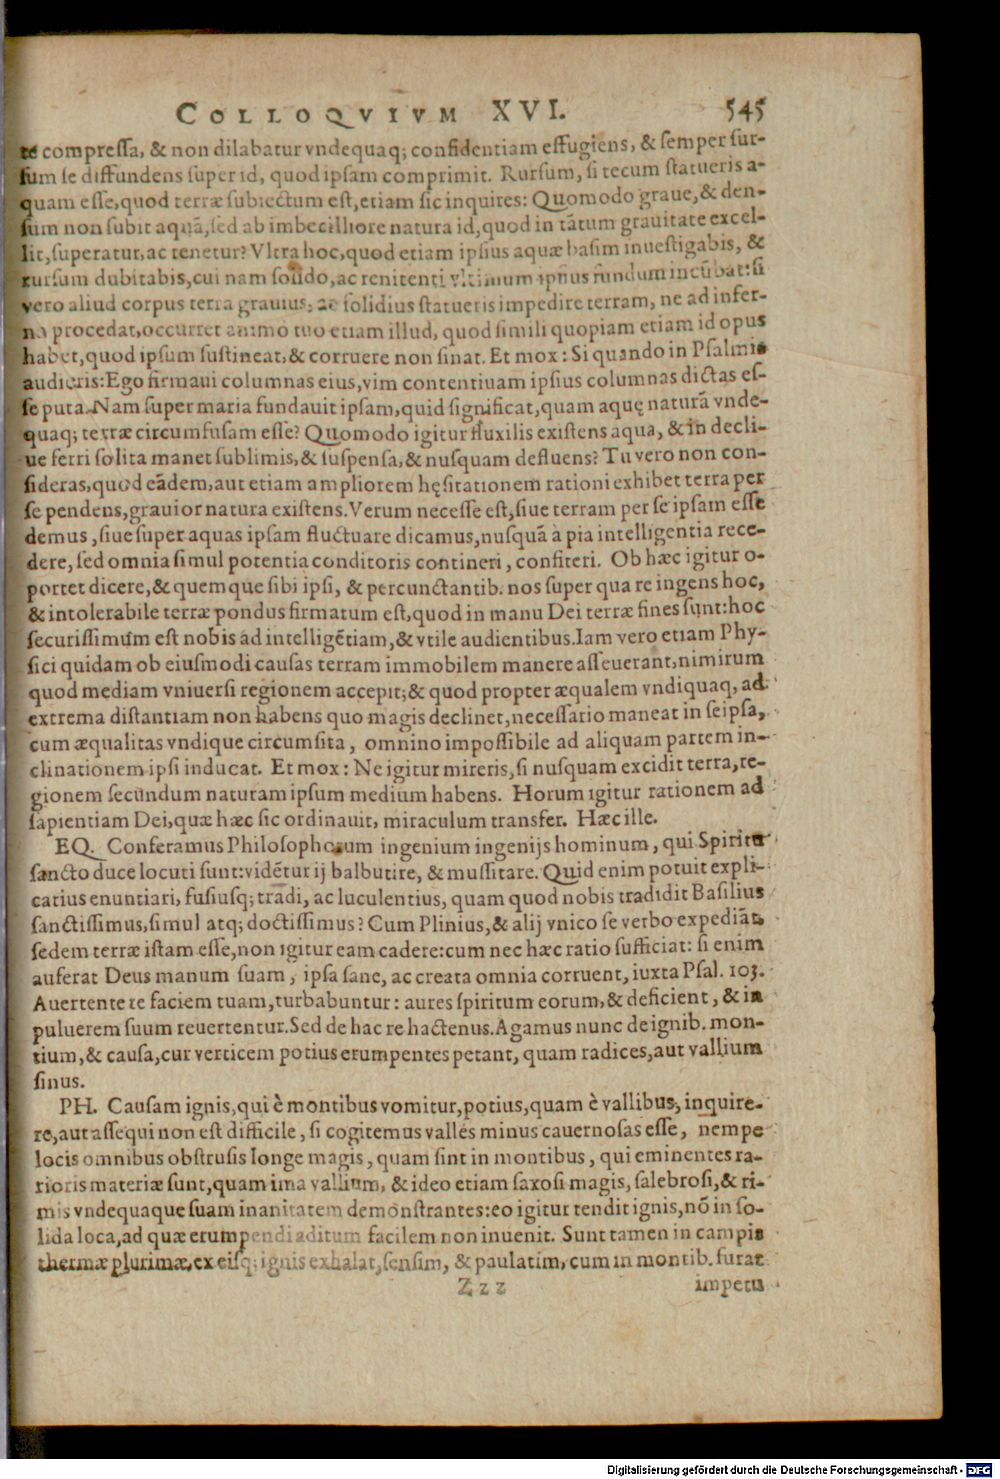 COLLOQVIVM XVI. 545
te compreſſa, & non dilabatur vndequaq; confidentiam effugiens, & ſemper ſur-
ſum ſe diffundens ſuper id, quod ipſam comprimit. Rurſum, ſi tecum ſtatueris a-
quam eſſe, quod terræ ſubiectum eſt, etiam ſic inquires: Quomodo graue, & den-
ſum non ſubit aquã, ſed ab imbecilliore natura id, quod in tãtum grauitate excel-
lit, ſuperatur, ac tenetur? Vltra hoc, quod etiam ipſius aquæ baſim inueſtigabis, &
rurſum dubitabis, cui nam ſolido, ac renitenti vltimum ipſius fundum incũbat: ſi
vero aliud corpus terra grauius, ac ſolidius ſtatueris impedire terram, ne ad infer-
na procedat, occurret animo tuo etiam illud, quod ſimili quopiam etiam id opus
habet, quod ipſum ſuſtineat, & corruere non ſinat. Et mox: Si quando in Pſalmis
audieris: Ego firmaui columnas eius, vim contentiuam ipſius columnas dictas eſ-
ſe puta. Nam ſuper maria fundauit ipſam, quid ſignificat, quam aquę naturã vnde-
quaq; terræ circumfuſam eſſe? Quomodo igitur fluxilis exiſtens aqua, & in decli-
ue ferri ſolita manet ſublimis, & ſuſpenſa, & nuſquam defluens? Tu vero non con-
ſideras, quod eãdem, aut etiam ampliorem hęſitationem rationi exhibet terra per
ſe pendens, grauior natura exiſtens. Verum neceſſe eſt, ſiue terram per ſe ipſam eſſe
demus, ſiue ſuper aquas ipſam fluctuare dicamus, nuſquã à pia intelligentia rece-
dere, ſed omnia ſimul potentia conditoris contineri, confiteri. Ob hæc igitur o-
portet dicere, & quemque ſibi ipſi, & percunctantib. nos ſuper qua re ingens hoc,
& intolerabile terræ pondus firmatum eſt, quod in manu Dei terræ fines ſunt: hoc
ſecuriſſimum eſt nobis ad intelligẽtiam, & vtile audientibus. Iam vero etiam Phy-
ſici quidam ob eiuſmodi cauſas terram immobilem manere aſſeuerant, nimirum
quod mediam vniuerſi regionem accepit; & quod propter æqualem vndiquaq, ad
extrema diſtantiam non habens quo magis declinet, neceſſario maneat in ſeipſa,
cum æqualitas vndique circumſita, omnino impoſſibile ad aliquam partem in-
clinationem ipſi inducat. Et mox: Ne igitur mireris, ſi nuſquam excidit terra, re-
gionem ſecundum naturam ipſum medium habens. Horum igitur rationem ad
ſapientiam Dei, quæ hæc ſic ordinauit, miraculum transfer. Hæc ille.
EQ. Conferamus Philoſophorum ingenium ingenijs hominum, qui Spiritu
ſancto duce locuti ſunt: vidẽtur ij balbutire, & muſſitare. Quid enim potuit expli-
catius enuntiari, fuſiuſq; tradi, ac luculentius, quam quod nobis tradidit Baſilius
ſanctiſſimus, ſimul atq; doctiſſimus? Cum Plinius, & alij vnico ſe verbo expediãt,
ſedem terræ iſtam eſſe, non igitur eam cadere: cum nec hæc ratio ſufficiat: ſi enim
auferat Deus manum ſuam, ipſa ſane, ac creata omnia corruent, iuxta Pſal. 103.
Auertente te faciem tuam, turbabuntur: aures ſpiritum eorum, & deficient, & in
puluerem ſuum reuertentur. Sed de hac re hactenus. Agamus nunc de ignib. mon-
tium, & cauſa, cur verticem potius erumpentes petant, quam radices, aut vallium
ſinus.
PH. Cauſam ignis, qui è montibus vomitur, potius, quam è vallibus, inquire-
re, aut aſſequi non eſt difficile, ſi cogitemus valles minus cauernoſas eſſe, nempe
locis omnibus obſtruſis longe magis, quam ſint in montibus, qui eminentes ra-
rioris materiæ ſunt, quam ima vallium, & ideo etiam ſaxoſi magis, ſalebroſi, & ri-
mis vndequaque ſuam inanitatem demonſtrantes: eo igitur tendit ignis, nõ in ſo-
lida loca, ad quæ erumpendi aditum facilem non inuenit. Sunt tamen in campis
thermæ plurimæ, ex eiſq; ignis exhalat, ſenſim, & paulatim, cum in montib. furat
Zzz impetu
Digitalisierung gefördert durch die Deutsche Forschungsgemeinschaft - DFG